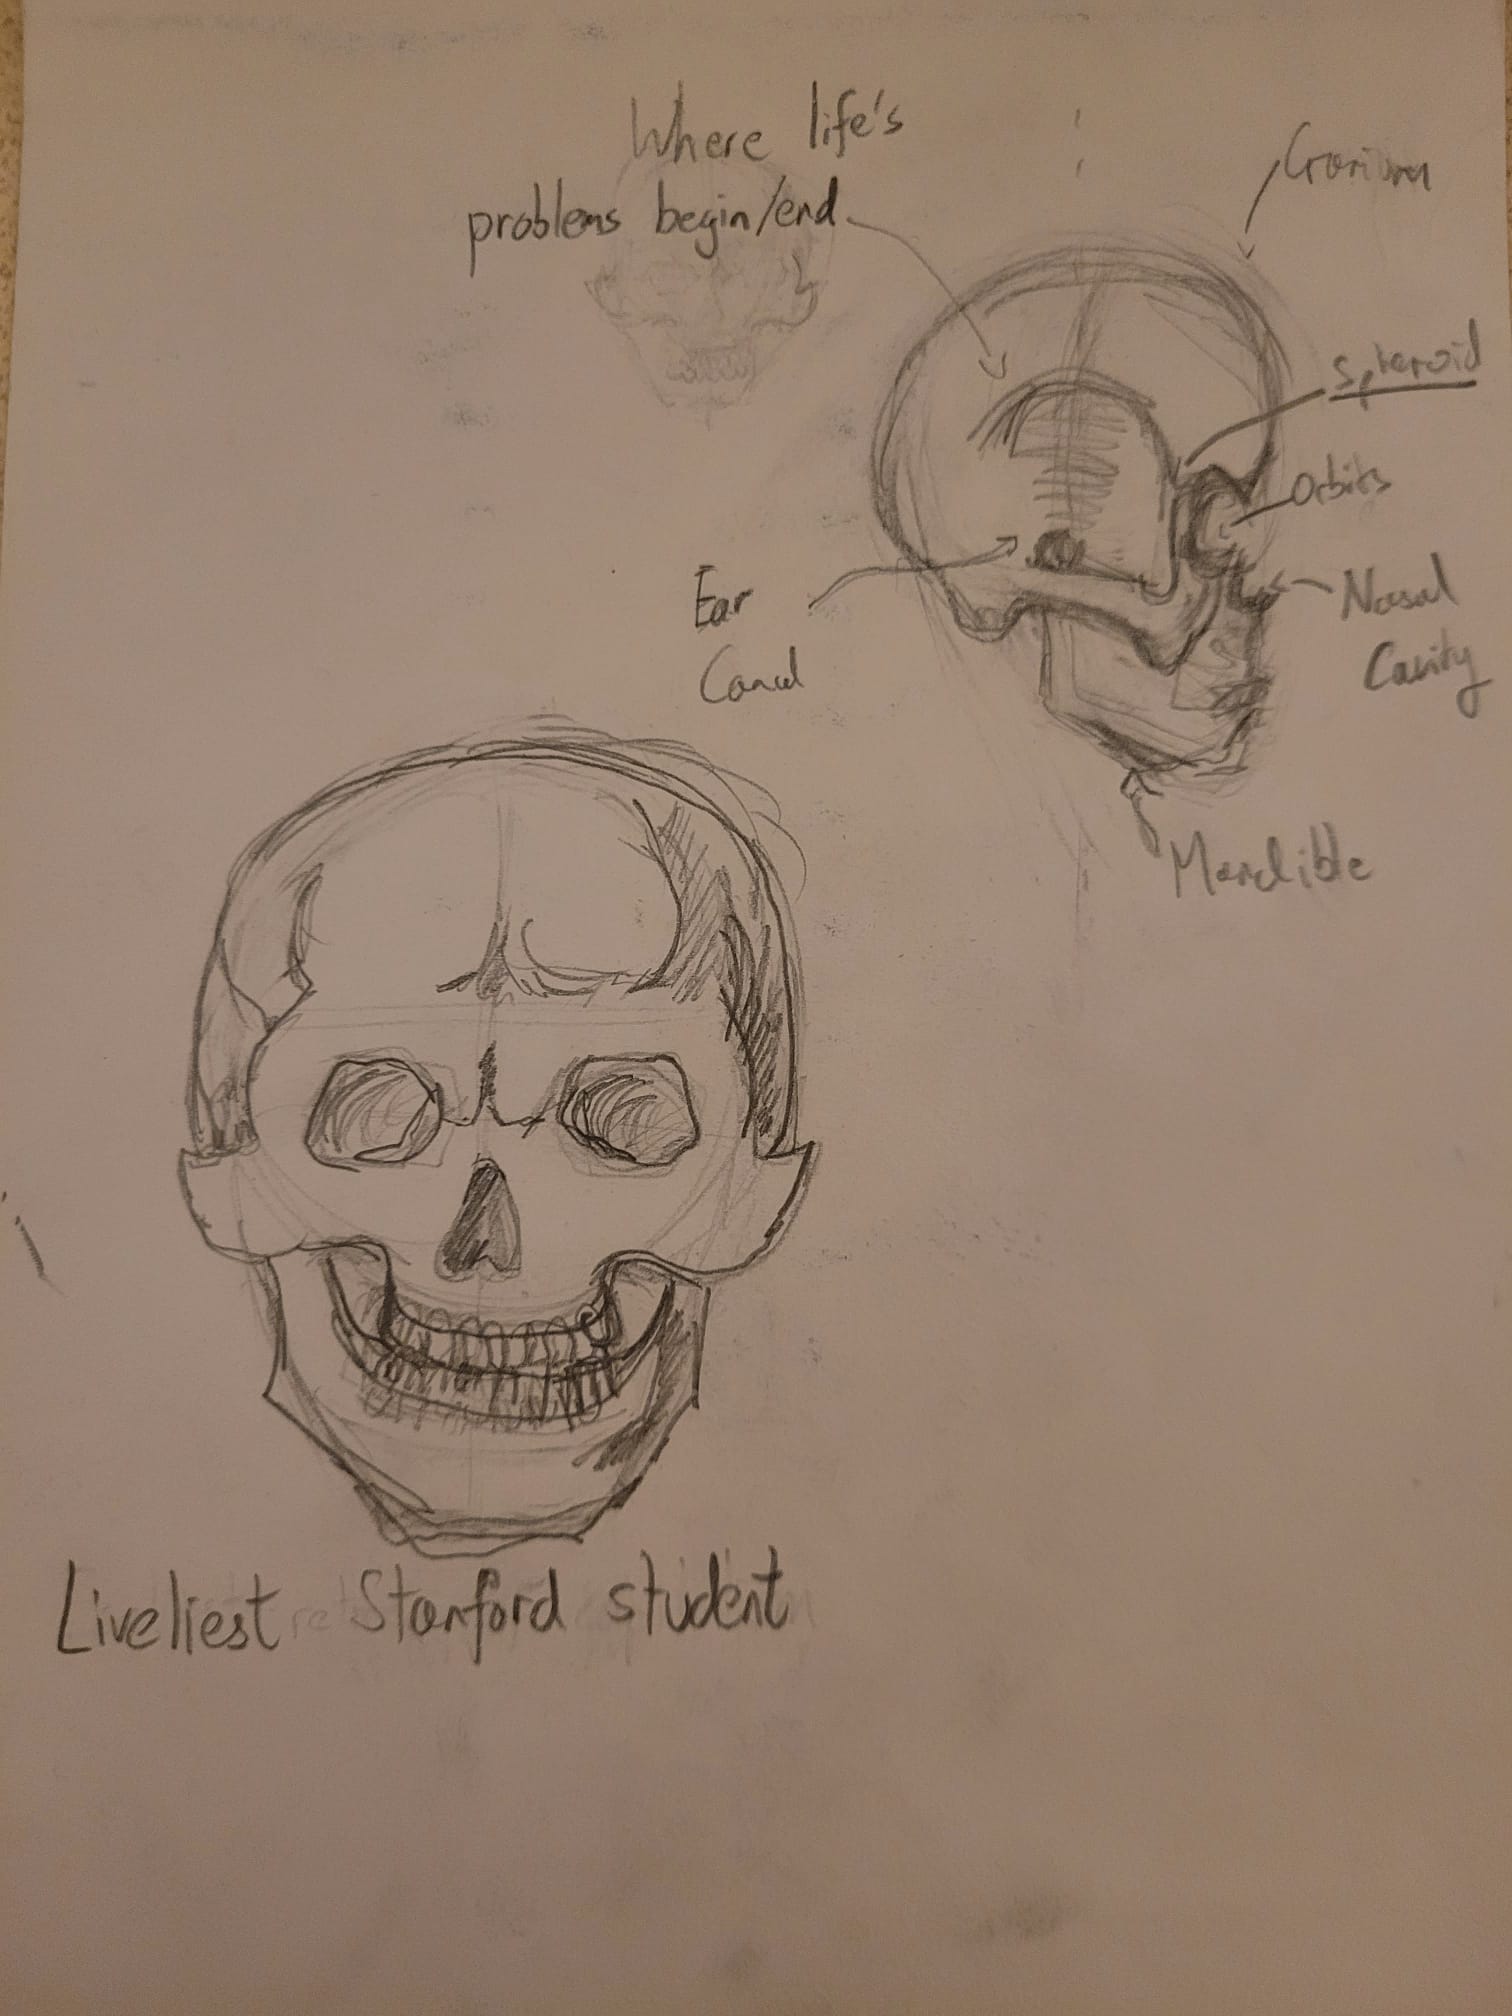 Where life's
problems begin/end
Cranium
Sphenoid
Orbits
Ear
Canal
Nasal
Cavity
Mandible
Liveliest Stanford student